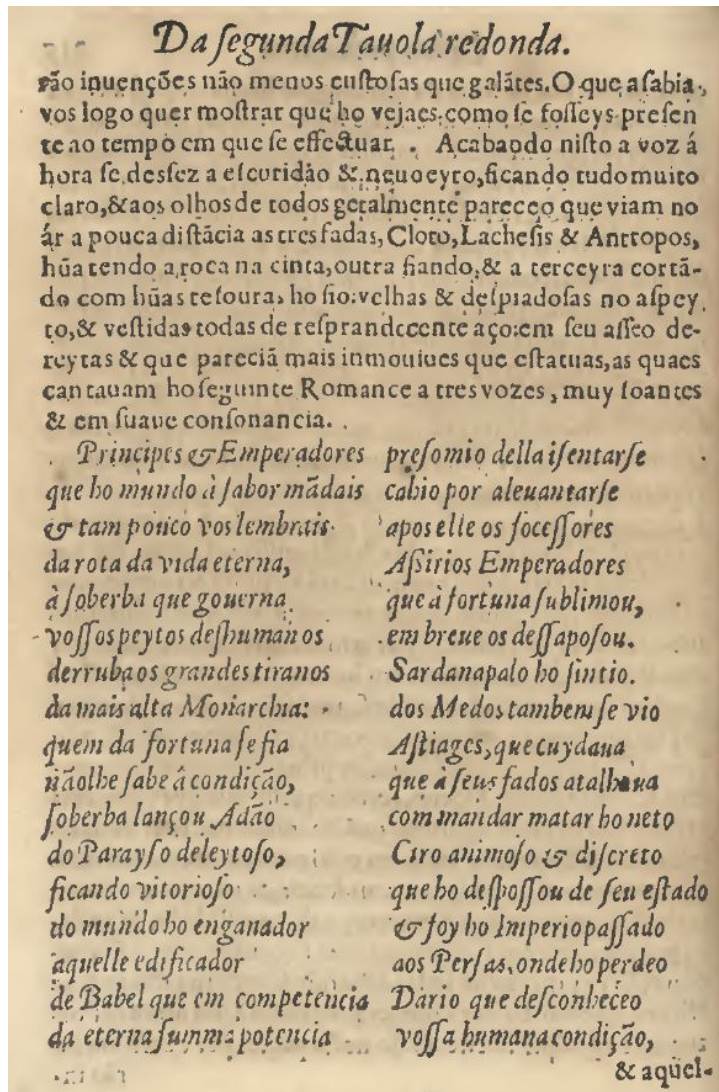 Da ſegunda Tauola redonda.
rão inuenções não menos cuſtoſas que galãtes. O que a ſabia
vos logo quer moſtrar que ho vejaes, como ſe foſſeys preſen
te ao tempo em que ſe effectuar. Acabando niſto a voz á
hora ſe desfez a eſcuridão & neuoeyro, ficando tudo muito
claro, & aos olhos de todos geralmente pareceo que viam no
ár a pouca diſtãcia as tres fadas, Cloto, Lacheſis & Antropos,
hũa tendo a roca na cinta, outra fiando, & a terceyra cortã-
do com hũas teſouras ho fio: velhas & deſpiadoſas no aſpey
to, & veſtidas todas de reſprandecente aço: em ſeu aſſeo de-
reytas & que pareciã mais inmouiues que eſtatuas, as quaes
cantauam ho ſeguinte Romance a tres vozes, muy ſoantes
& em ſuaue conſonancia.
Principes & Emperadores
que ho mundo à ſabor mãdais
& tam pouco vos lembrais
da rota da vida eterna,
à ſoberba que gouerna
voſſos peytos deſhumanos
derruba os grandes tiranos
da mais alta Monarchia:
quem da fortuna ſe fia
não lhe ſabe â condição,
ſoberba lançou Adão
do Parayſo deleytoſo,
ficando vitorioſo
do mundo ho enganador
aquelle edificador
de Babel que em competencia
da eterna ſumma potencia
preſomio della iſentarſe
cahio por aleuantarſe
apos elle os ſoceſſores
Aſsirios Emperadores
que à fortuna ſublimou,
em breue os deſſapoſou.
Sardanapalo ho ſintio.
dos Medos tambem ſe vio
Aſtiages, que cuydaua
que à ſeus fados atalhaua
com mandar matar ho neto
Ciro animoſo & diſcreto
que ho deſpoſſou de ſeu eſtado
& foy ho Imperio paſſado
aos Perſas, onde ho perdeo
Dario que deſconheceo
voſſa humana condição,
& aquel-